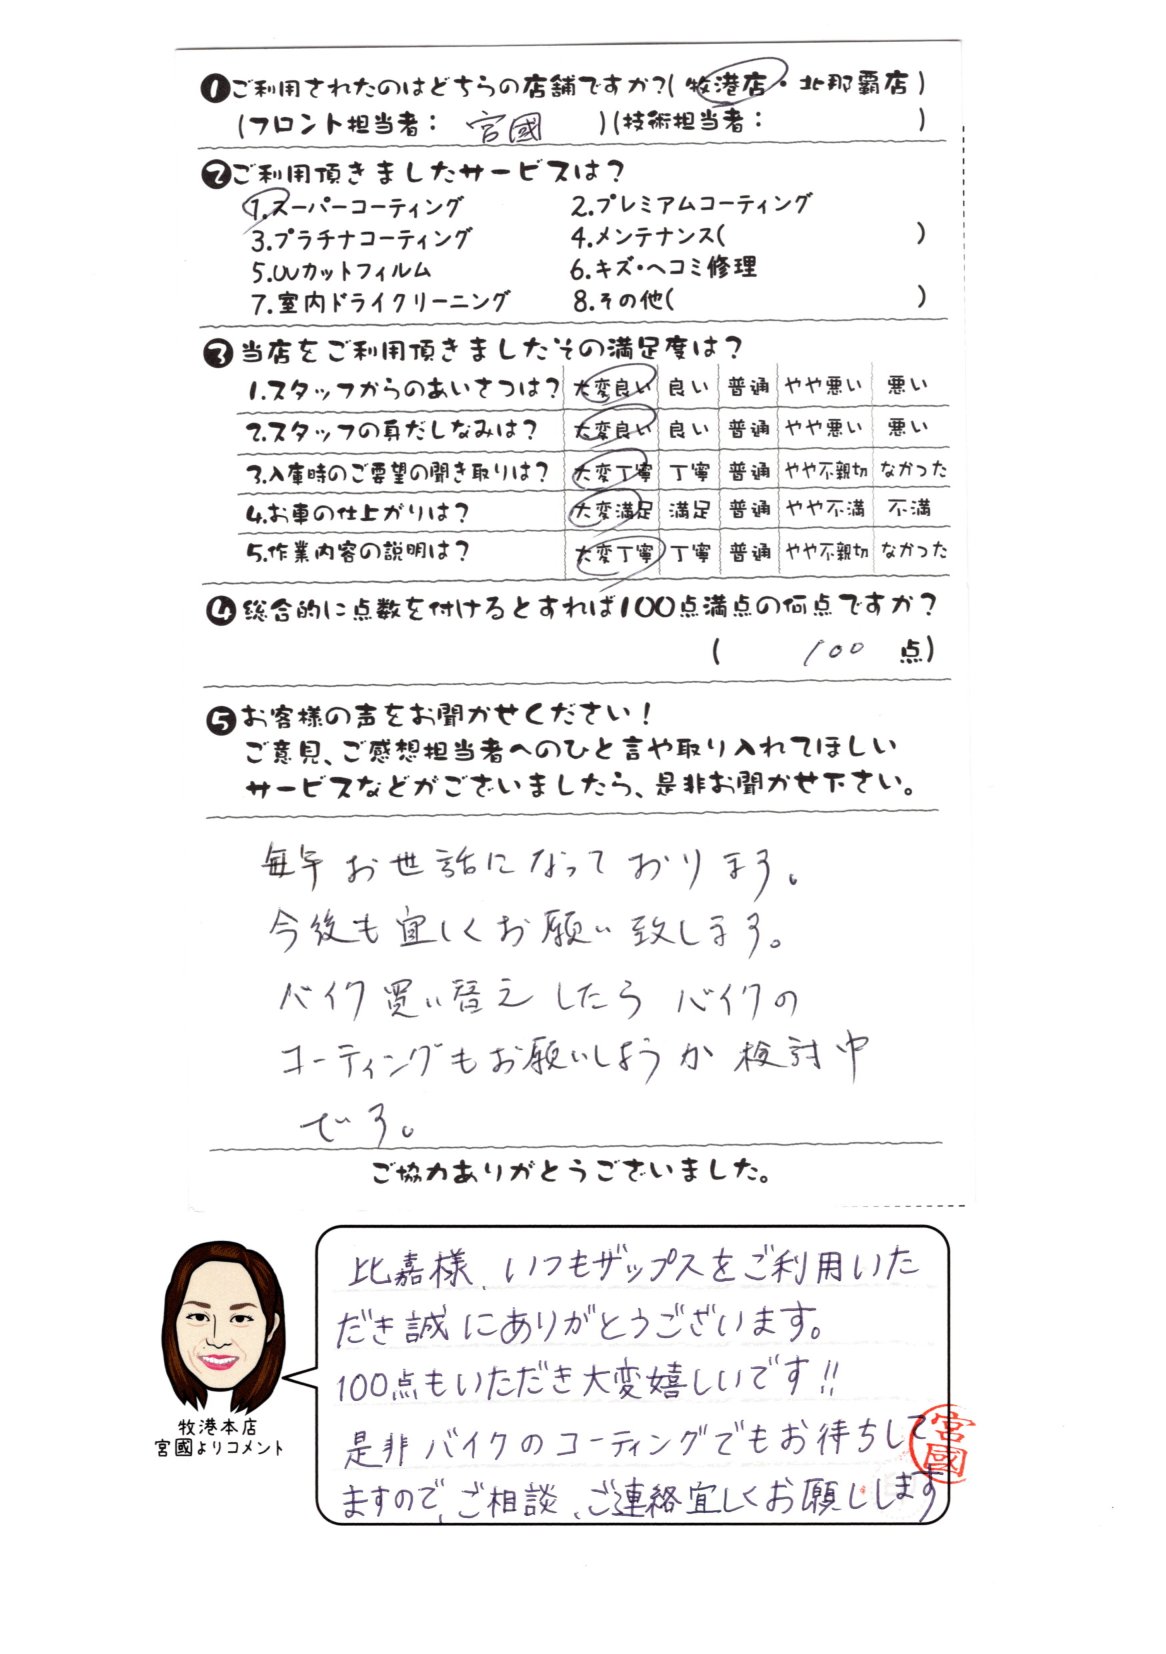 ❶ご利用されたのはどちらの店舗ですか?(牧港店・北那覇店)
(フロント担当者: 宮國 )(技術担当者: )
❷ご利用頂きましたサービスは?
1.スーパーコーティング 2.プレミアムコーティング
3.プラチナコーティング 4.メンテナンス( )
5.UVカットフィルム 6.キズ・ヘコミ修理
7.室内ドライクリーニング 8.その他( )
❸当店をご利用頂きましたその満足度は?
1.スタッフからのあいさつは? 大変良い 良い 普通 やや悪い 悪い
2.スタッフの身だしなみは? 大変良い 良い 普通 やや悪い 悪い
3.入庫時のご要望の聞き取りは? 大変丁寧 丁寧 普通 やや不親切 なかった
4.お車の仕上がりは? 大変満足 満足 普通 やや不満 不満
5.作業内容の説明は? 大変丁寧 丁寧 普通 やや不親切 なかった
❹総合的に点数を付けるとすれば100点満点の何点ですか?
( 100 点)
❺お客様の声をお聞かせください!
ご意見、ご感想担当者へのひと言や取り入れてほしい
サービスなどがございましたら、是非お聞かせ下さい。
毎年お世話になっております。
今後も宜しくお願い致します。
バイク買い替えしたらバイクの
コーティングもお願いしようか検討中
です。
ご協力ありがとうございました。
比嘉様、いつもザップスをご利用いた
だき誠にありがとうございます。
100点もいただき大変嬉しいです!!
是非バイクのコーティングでもお待ちして
ますので、ご相談、ご連絡宜しくお願いします
宮國
牧港本店
宮國よりコメント